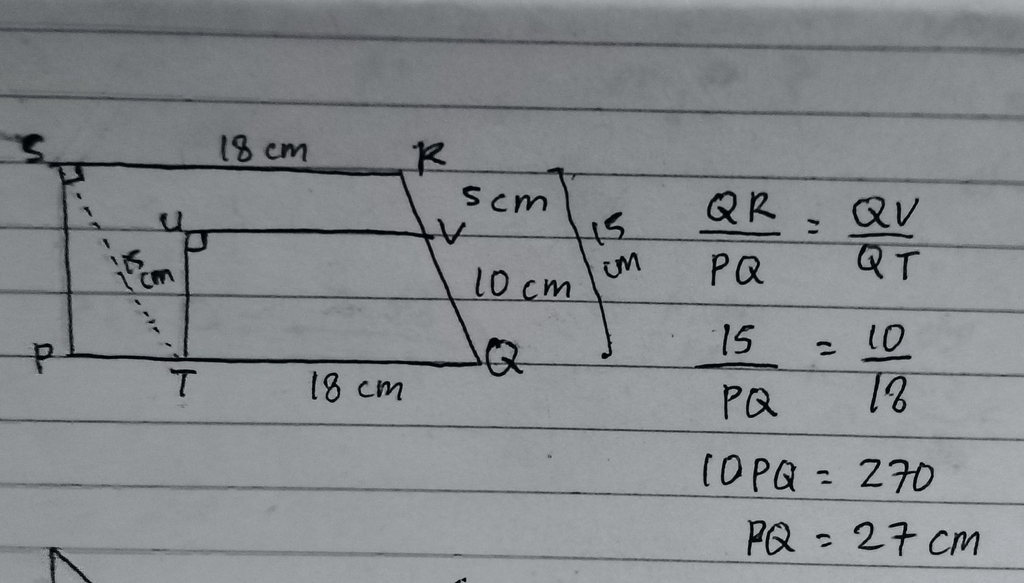 S
18 cm
R
5 cm
U
V
15
cm
15
cm
10 cm
P
T
18 cm
Q
QR/PQ = QV/QT
15/PQ = 10/18
10PQ = 270
PQ = 27 cm